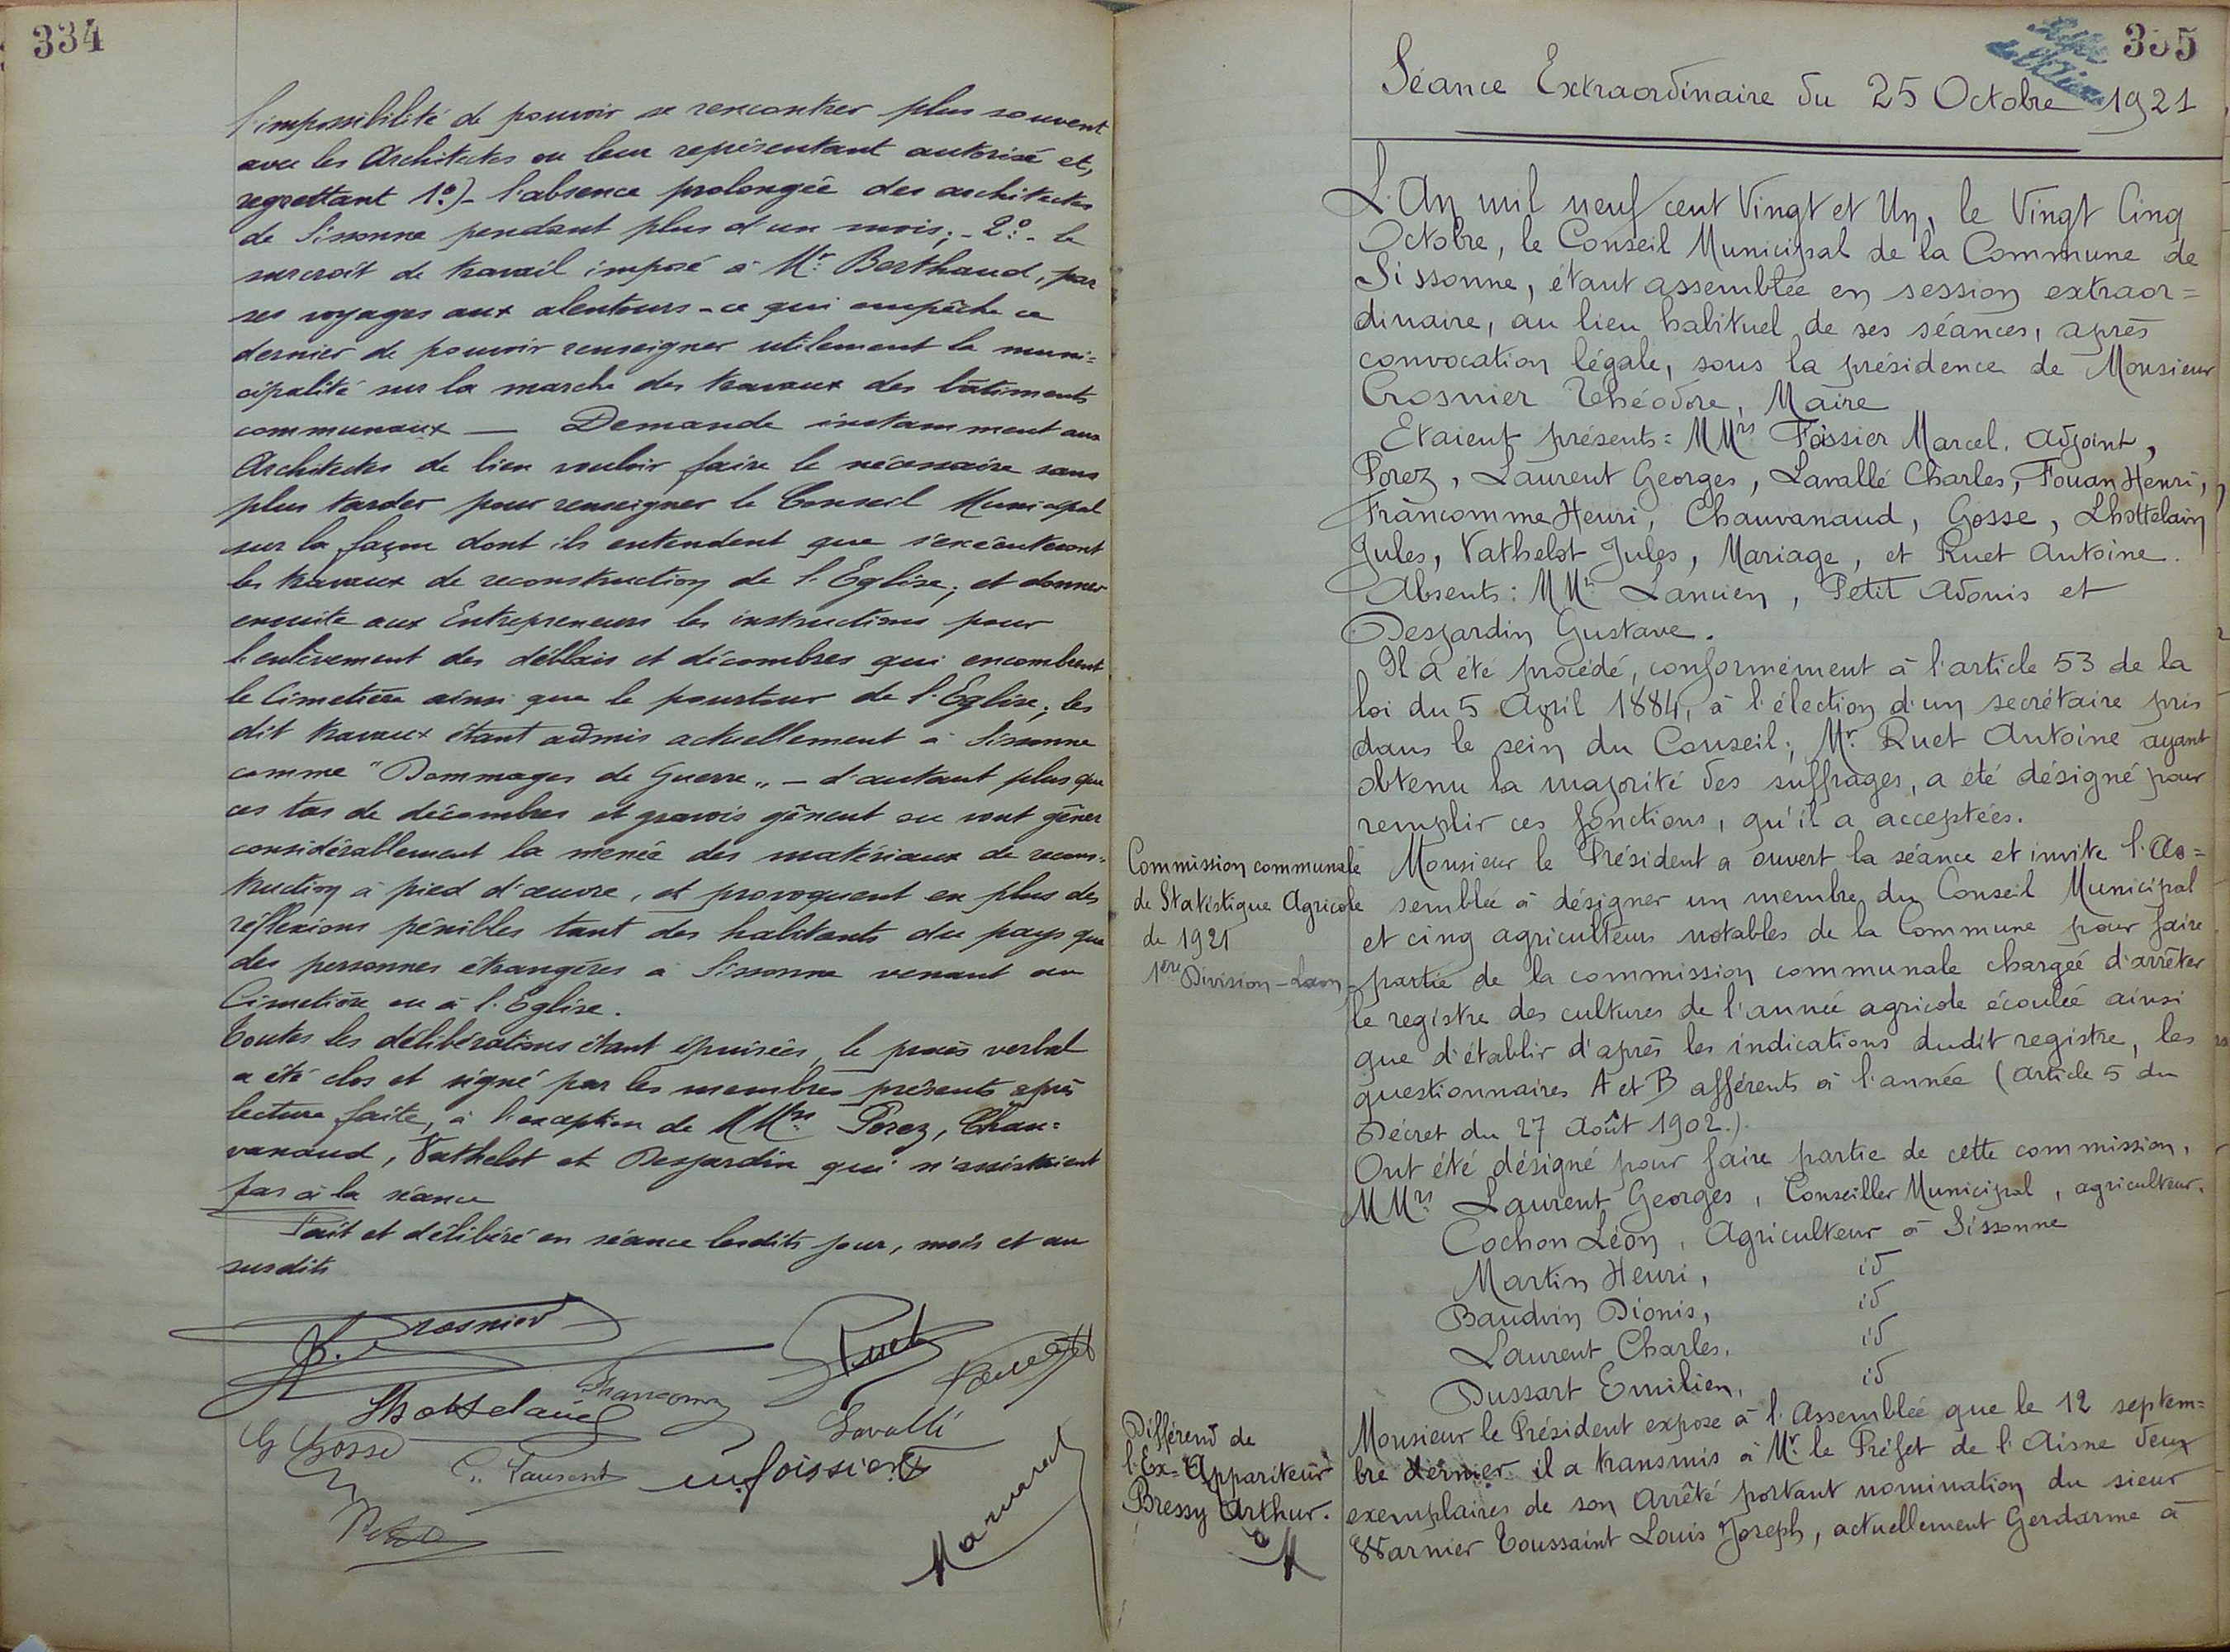 334
l'impossibilité de pouvoir se rencontrer plus souvent
avec les Architectes ou leur représentant autorisé et,
regrettant 1º)- l'absence prolongée des architectes
de Sissonne pendant plus d'un mois; - 2º - le
surcroît de travail imposé à Mr. Berthaud, par
ses voyages aux alentours - ce qui empêche ce
dernier de pouvoir renseigner utilement la muni=
cipalité sur la marche des travaux des bâtiments
communaux — Demande instamment aux
Architectes de bien vouloir faire le nécessaire sans
plus tarder pour renseigner le Conseil Municipal
sur la façon dont ils entendent que s'exécuteront
les travaux de reconstruction de l'Eglise; et donner
ensuite aux Entrepreneurs les instructions pour
l'enlèvement des déblais et décombres qui encombrent
le Cimetière ainsi que le pourtour de l'Eglise; les
dit travaux étant admis actuellement à Sissonne
comme "Dommages de Guerre" - d'autant plus que
ces tas de décombres et gravois gênent ou vont gêner
considérablement la menée des matériaux de recons=
truction à pied d'œuvre, et provoquent en plus des
réflexions pénibles tant des habitants du pays que
des personnes étrangères à Sissonne venant au
Cimetière ou à l'Eglise.
Toutes les délibérations étant épuisées, le procès verbal
a été clos et signé par les membres présents après
lecture faite, à l'exception de MMrs Porez, Chau=
vanaud, Vathelot et Desjardin qui n'assistaient
pas à la séance
Fait et délibéré en séance lesdits jour, mois et an
susdits
Crosnier
Ruet
Francomme
Lhottelain
Lavallé
G Gosse
G. Laurent
M. Foissier
335
Séance Extraordinaire du 25 Octobre 1921
L'An mil neuf cent Vingt et Un, le Vingt Cinq
Octobre, le Conseil Municipal de la Commune de
Sissonne, étant assemblée en session extraor=
dinaire, au lieu habituel de ses séances, après
convocation légale, sous la présidence de Monsieur
Crosnier Théodore, Maire
Etaient présents: MMrs Foissier Marcel, adjoint,
Porez, Laurent Georges, Lavallé Charles, Fouan Henri,
Francomme Henri, Chauvanaud, Gosse, Lhottelain
Jules, Vathelot Jules, Mariage, et Ruet Antoine.
Absents: MMrs Lancien, Petit Adonis et
Desjardin Gustave.
Il a été procédé, conformément à l'article 53 de la
loi du 5 Avril 1884, à l'élection d'un secrétaire pris
dans le sein du Conseil; Mr. Ruet Antoine ayant
obtenu la majorité des suffrages, a été désigné pour
remplir ces fonctions, qu'il a acceptées.
Commission communale
de Statistique Agricole
de 1921
1ère Division - Laon -
Monsieur le Président a ouvert la séance et invite l'as=
semblée à désigner un membre du Conseil Municipal
et cinq agriculteurs notables de la Commune pour faire
partie de la commission communale chargée d'arrêter
le registre des cultures de l'année agricole écoulée ainsi
que d'établir d'après les indications dudit registre, les
questionnaires A et B afférents à l'année (article 5 du
Décret du 27 Août 1902.).
Ont été désigné pour faire partie de cette commission,
MMrs Laurent Georges, Conseiller Municipal, agriculteur,
Cochon Léon, Agriculteur à Sissonne
Martin Henri, id
Baudvin Dionis, id
Laurent Charles, id
Dussart Emilien, id
Différend de
l'Ex-Appariteur
Bressy Arthur.
Monsieur le Président expose à l'Assemblée que le 12 septem=
bre dernier il a transmis à Mr. le Préfet de l'Aisne deux
exemplaires de son Arrêté portant nomination du sieur
Warnier Toussaint Louis Joseph, actuellement Gendarme à